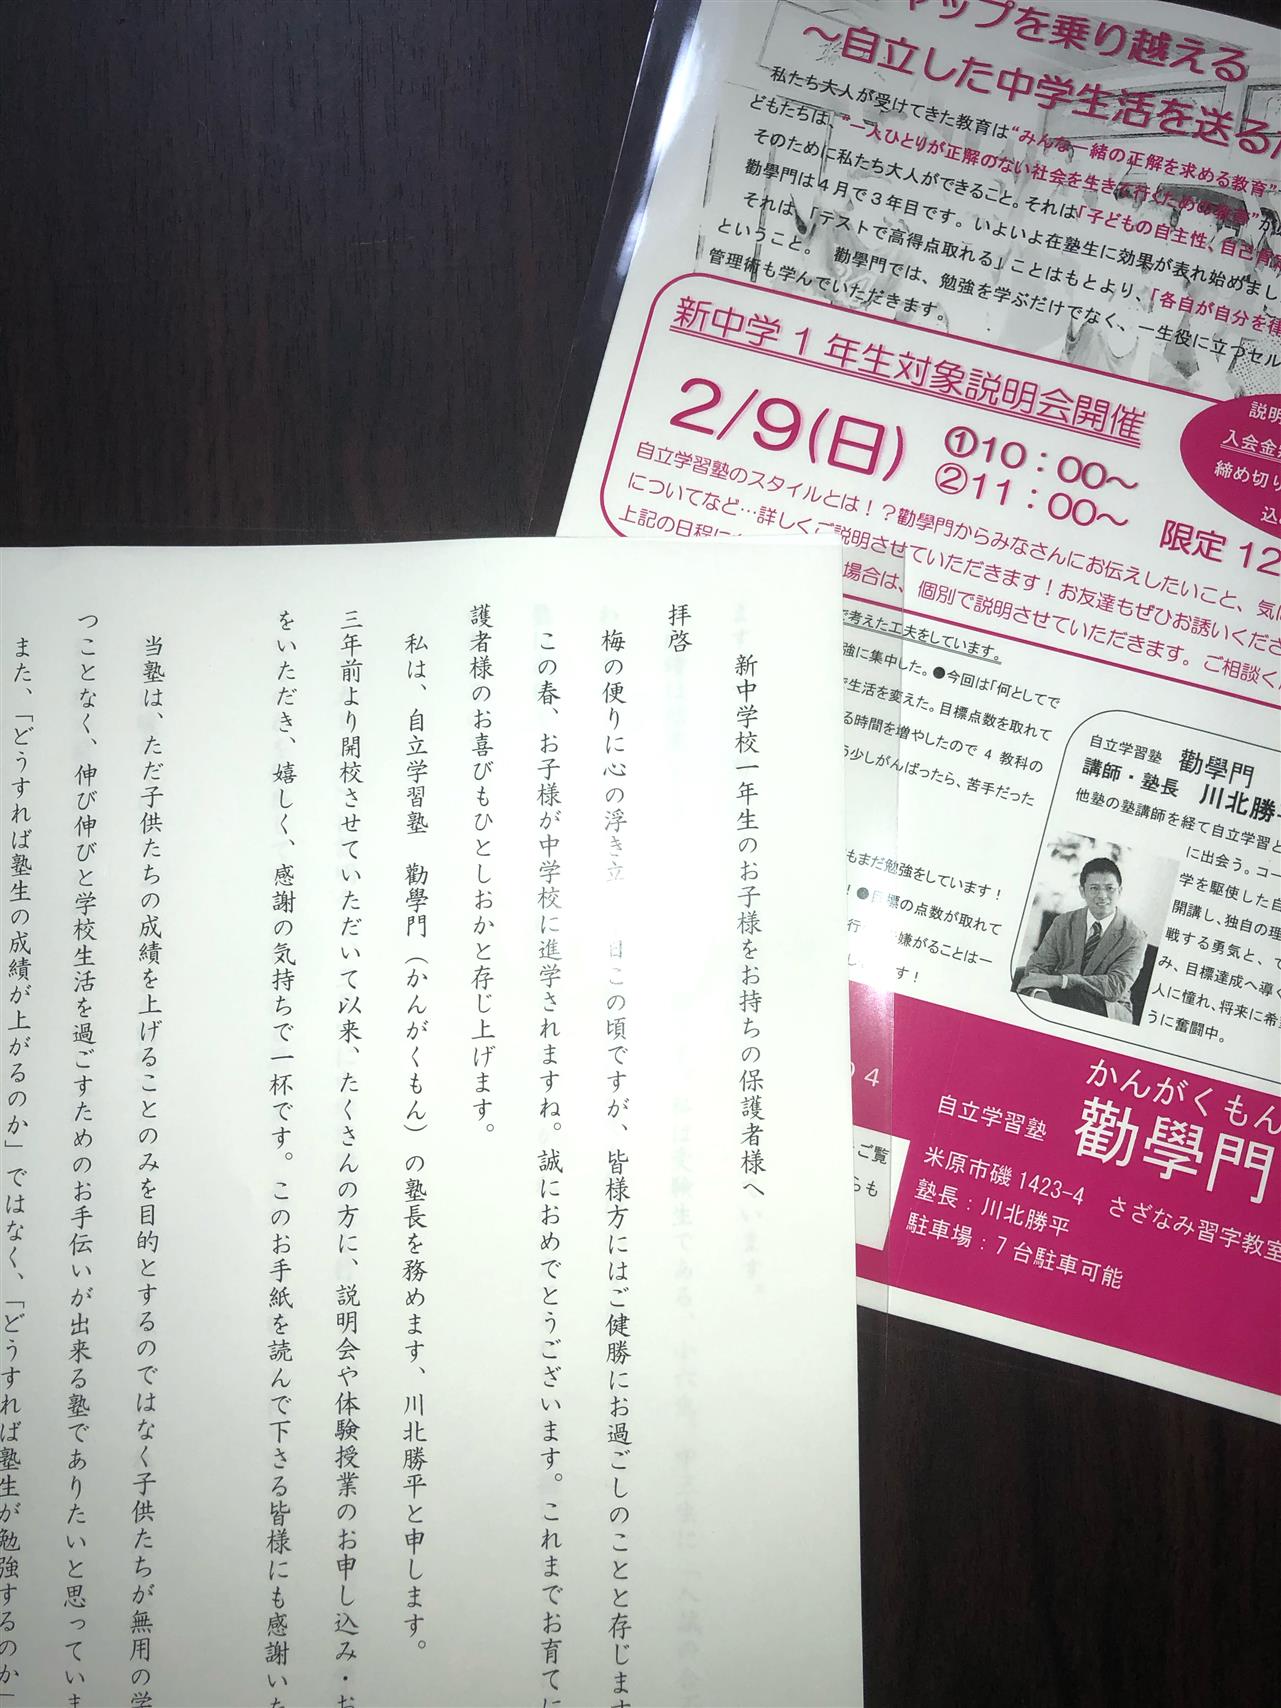 ャップを乗り越える
～自立した中学生活を送る
私たち大人が受けてきた教育は“みんな一緒の正解を求める教育”
どもたちは、“一人ひとりが正解のない社会を生きて行くための教育”が
そのために私たち大人ができること。それは「子どもの自主性、自己
勸學門は４月で３年目です。いよいよ在塾生に効果が表れ始めまし
それは、「テストで高得点取れる」ことはもとより、「各自が自分を律
ということ。　勸學門では、勉強を学ぶだけでなく、一生役に立つセル
管理術も学んでいただきます。
新中学１年生対象説明会開催
2/9(日)
①10：00～
②11：00～
限定 12
説明
入会金
締め切り
込
自立学習塾のスタイルとは！？勸學門からみなさんにお伝えしたいこと、気に
についてなど…詳しくご説明させていただきます！お友達もぜひお誘いくださ
上記の日程に
場合は、個別で説明させていただきます。ご相談く
考えた工夫をしています。
強に集中した。●今回は「何としてで
で生活を変えた。目標点数を取れて
る時間を増やしたので 4 教科の
う少しがんばったら、苦手だった
もまだ勉強をしています！
！●目標の点数が取れて
嫌がることは一
自立学習塾　勸學門
講師・塾長　川北勝
他塾の塾講師を経て自立学習と
に出会う。コー
学を駆使した自
開講し、独自の理
戦する勇気と、て
み、目標達成へ導く
人に憧れ、将来に希
うに奮闘中。
０４
ご覧
らも
かんがくもん
自立学習塾　勸學門
米原市磯 1423-4　さざなみ習字教室
塾長：川北勝平
駐車場：７台駐車可能
新中学校一年生のお子様をお持ちの保護者様へ
拝啓
梅の便りに心の浮き立　日この頃ですが、皆様方にはご健勝にお過ごしのことと存じます
この春、お子様が中学校に進学されますね。誠におめでとうございます。これまでお育てに
護者様のお喜びもひとしおかと存じ上げます。
私は、自立学習塾　勸學門（かんがくもん）の塾長を務めます、川北勝平と申します。
三年前より開校させていただいて以来、たくさんの方に、説明会や体験授業のお申し込み・お
をいただき、嬉しく、感謝の気持ちで一杯です。このお手紙を読んで下さる皆様にも感謝いた
当塾は、ただ子供たちの成績を上げることのみを目的とするのではなく子供たちが無用の学
つことなく、伸び伸びと学校生活を過ごすためのお手伝いが出来る塾でありたいと思っていま
また、「どうすれば塾生の成績が上がるのか」ではなく、「どうすれば塾生が勉強するのか」